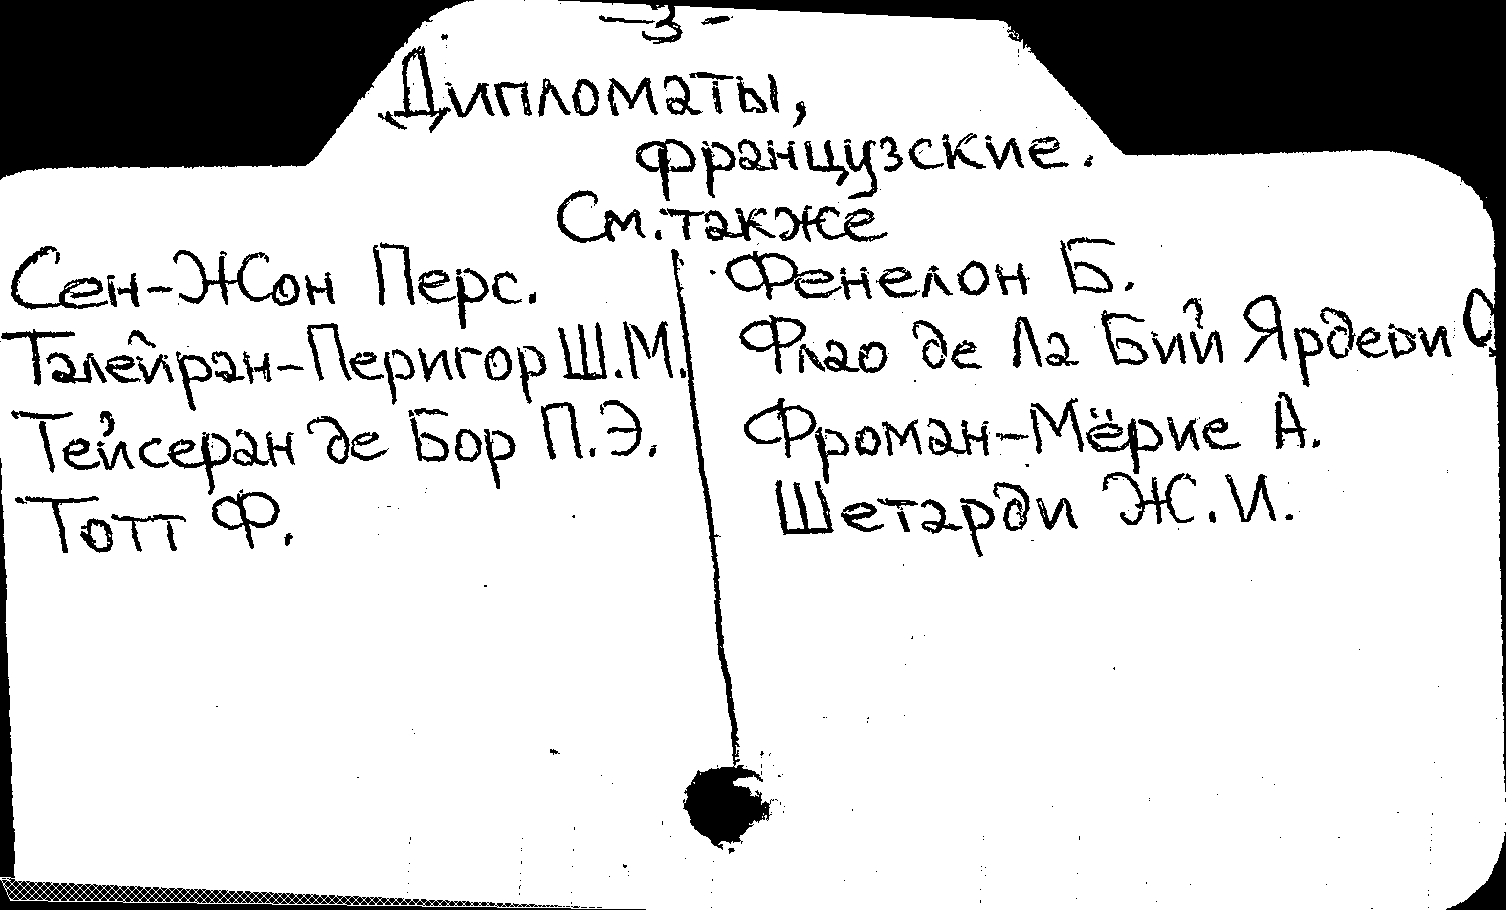 -3-
Дипломаты,
французские.
См. также
Сен-Жон Перс.
Талейран-Перигор Ш.М.
Тейсеран де Бор П.Э.
Тотт Ф.
Фенелон Б.
Флао де Ла Бий Ярдери О.
Фроман-Мёрие А.
Шетарди Ж.И.